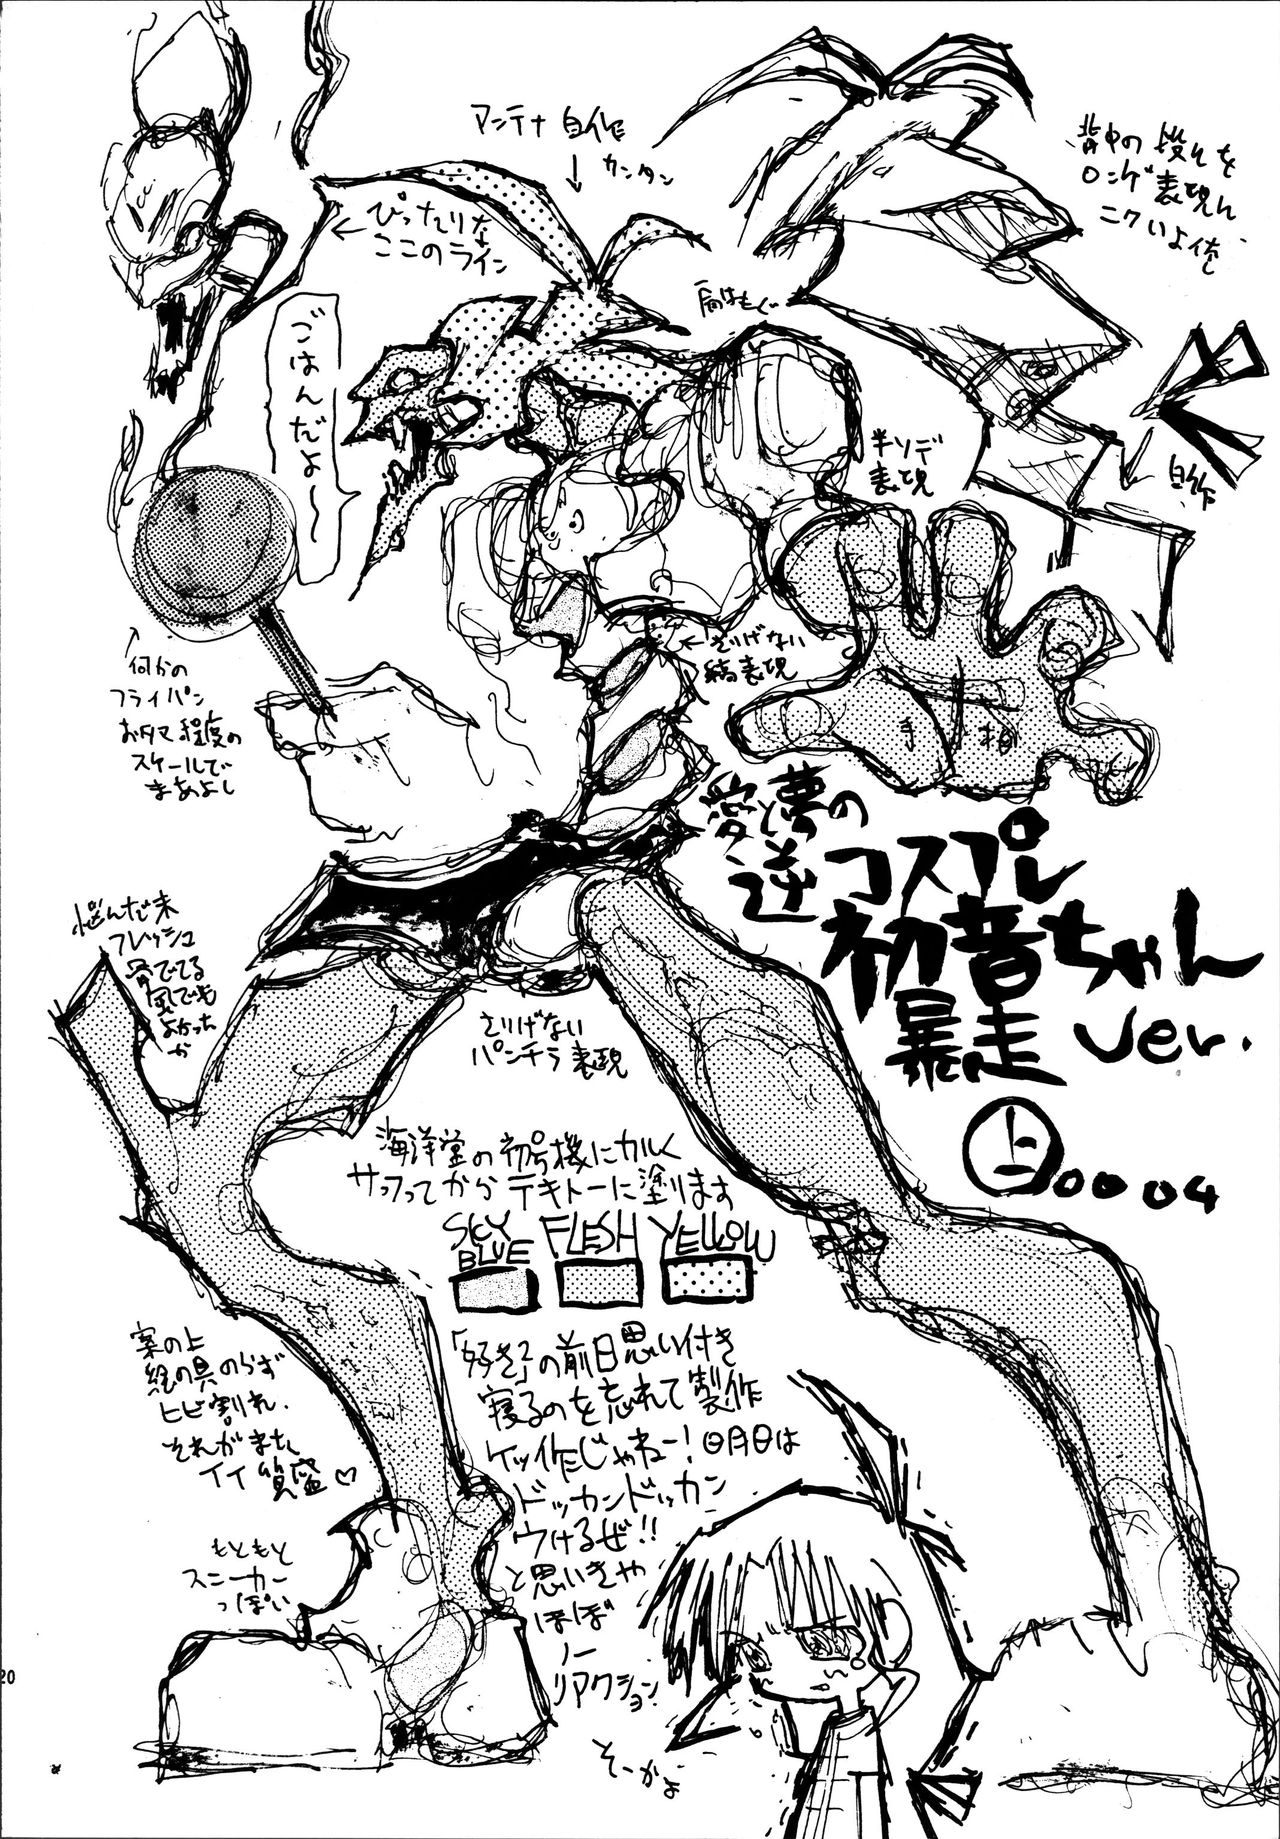 アンテナ自作
カンタン
背中の段々を
ロンゲ表現
ニクいよ俺
ぴったりな
ここのライン
肩はもぐ
ごはんだよ〜
半ソデ
表現
自作
さりげない
縞表現
何かの
フライパン
お タマ程度の
スケールで
まあよし
手相
愛と夢の
逆コスプレ
初音ちゃん
暴走ver.
上0004
悩んだ末
フレッシュ
骨でてる
風でも
よかった
か
さりげない
パンチラ表現
海洋堂の初号機にカルく
サフってからテキトーに塗ります
SKY BLUE
FLESH
YELLOW
案の上
絵の具のらず
ヒビ割れ、
それがまた
イイ質感♡
「好き2」の前日思い付き
寝るのを忘れて製作
ケッ作じゃねー!明日は
ドッカンドッカン
ウけるぜ!!
と思いきや
ほぼ
ノー
リアクション
もともと
スニーカー
っぽい
そーかよ
20